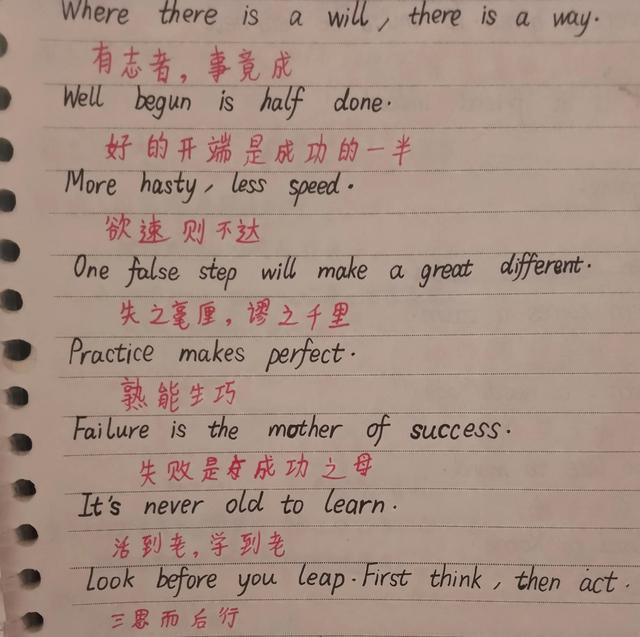 Where there is a will, there is a way.
有志者，事竟成
Well begun is half done.
好的开端是成功的一半
More hasty, less speed.
欲速则不达
One false step will make a great different.
失之毫厘，谬之千里
Practice makes perfect.
熟能生巧
Failure is the mother of success.
失败是成功之母
It's never old to learn.
活到老，学到老
Look before you leap. First think, then act.
三思而后行